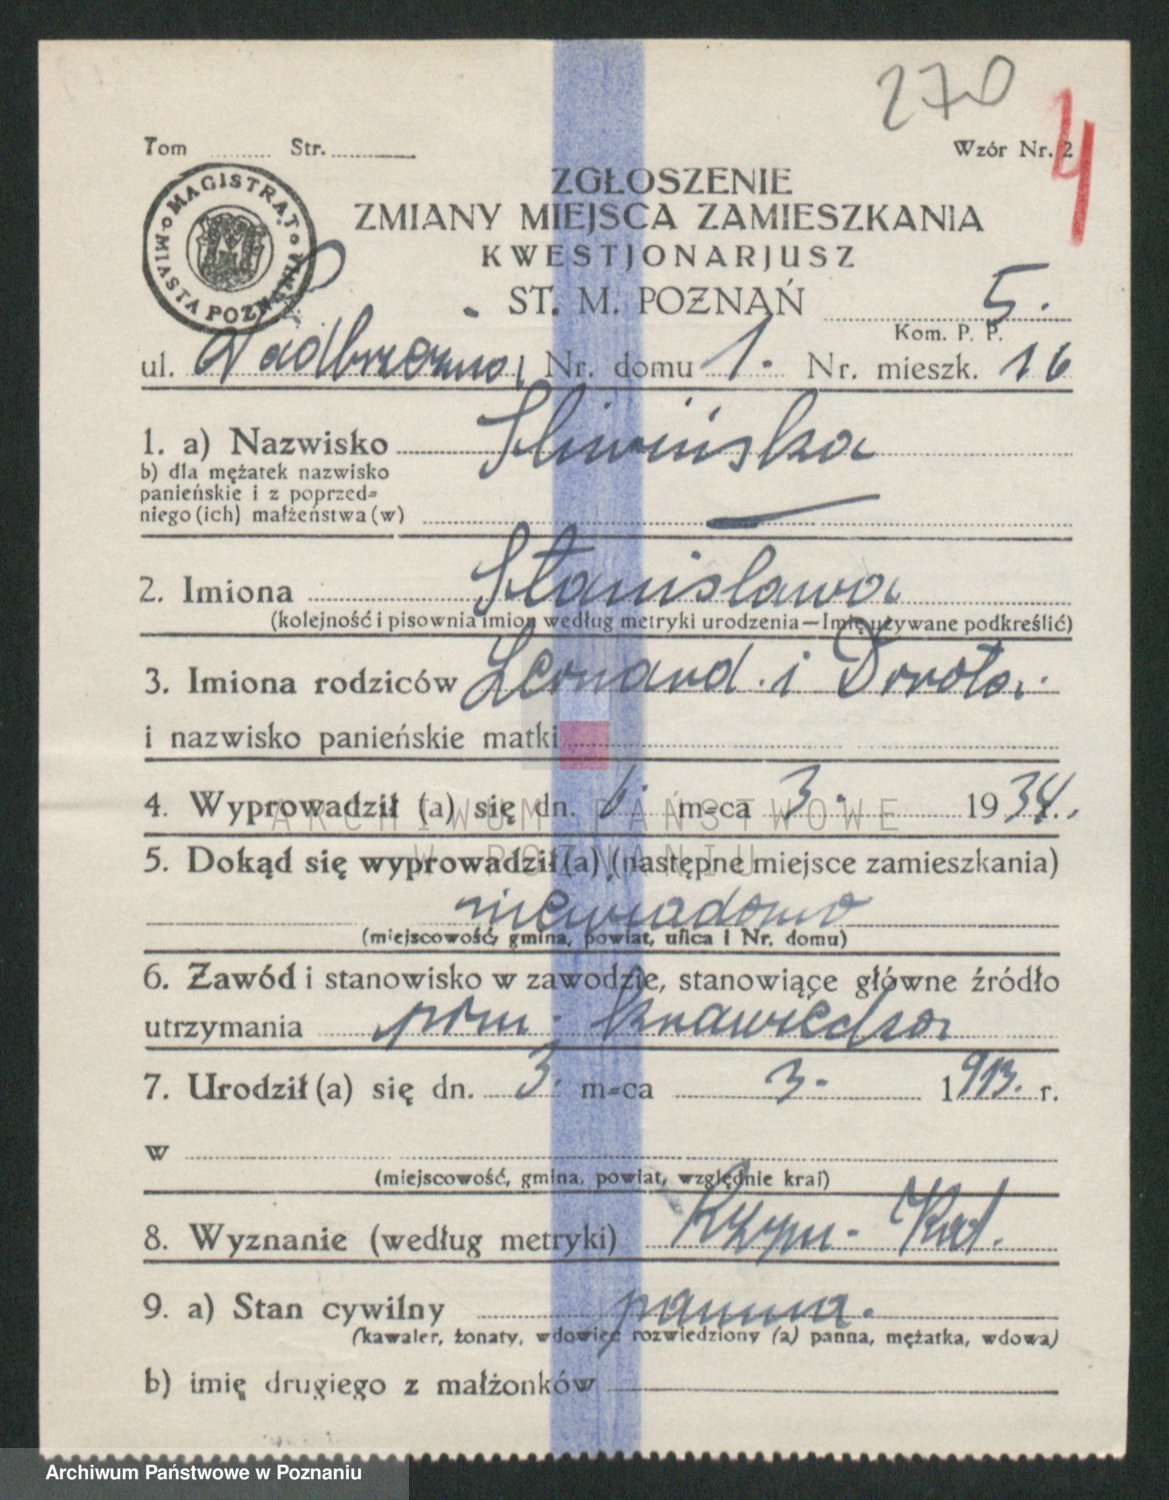 270
4
Tom ........ Str. ............ Wzór Nr. 2
MAGISTRAT MIASTA POZNANIA
ZGŁOSZENIE
ZMIANY MIEJSCA ZAMIESZKANIA
KWESTJONARJUSZ
ST. M. POZNAŃ 5.
Kom. P. P.
ul. Nr. domu 1. Nr. mieszk. 16
1. a) Nazwisko Śliwińska
b) dla mężatek nazwisko
panieńskie i z poprzed=
niego (ich) małżeństwa (w) —
2. Imiona Stanisława
(kolejność i pisownia imion według metryki urodzenia—Imię używane podkreślić)
3. Imiona rodziców Leonard i Dorota
i nazwisko panieńskie matki
4. Wyprowadził (a) się dn. m=ca 3. 1934.
5. Dokąd się wyprowadził (a) (następne miejsce zamieszkania)
niewiadomo
(miejscowość, gmina, powiat, ulica i Nr. domu)
6. Zawód i stanowisko w zawodzie, stanowiące główne źródło
utrzymania pom. krawiecka
7. Urodził (a) się dn. 3. m=ca 3. 1913. r.
w
(miejscowość, gmina, powiat, względnie kraj)
8. Wyznanie (według metryki) Rzym. Kat.
9. a) Stan cywilny panna.
(kawaler, żonaty, wdowiec rozwiedziony (a) panna, mężatka, wdowa)
b) imię drugiego z małżonków
ARCHIWUM PAŃSTWOWE
W POZNANIU
Archiwum Państwowe w Poznaniu